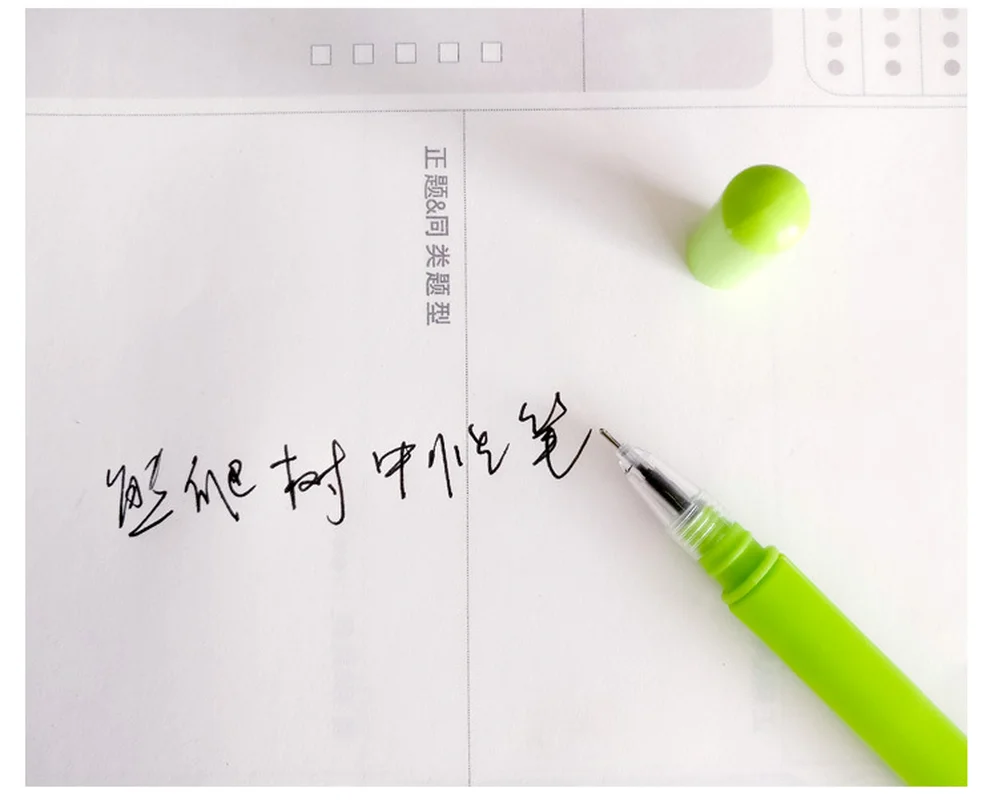 正题&同类题型
爬树中性笔